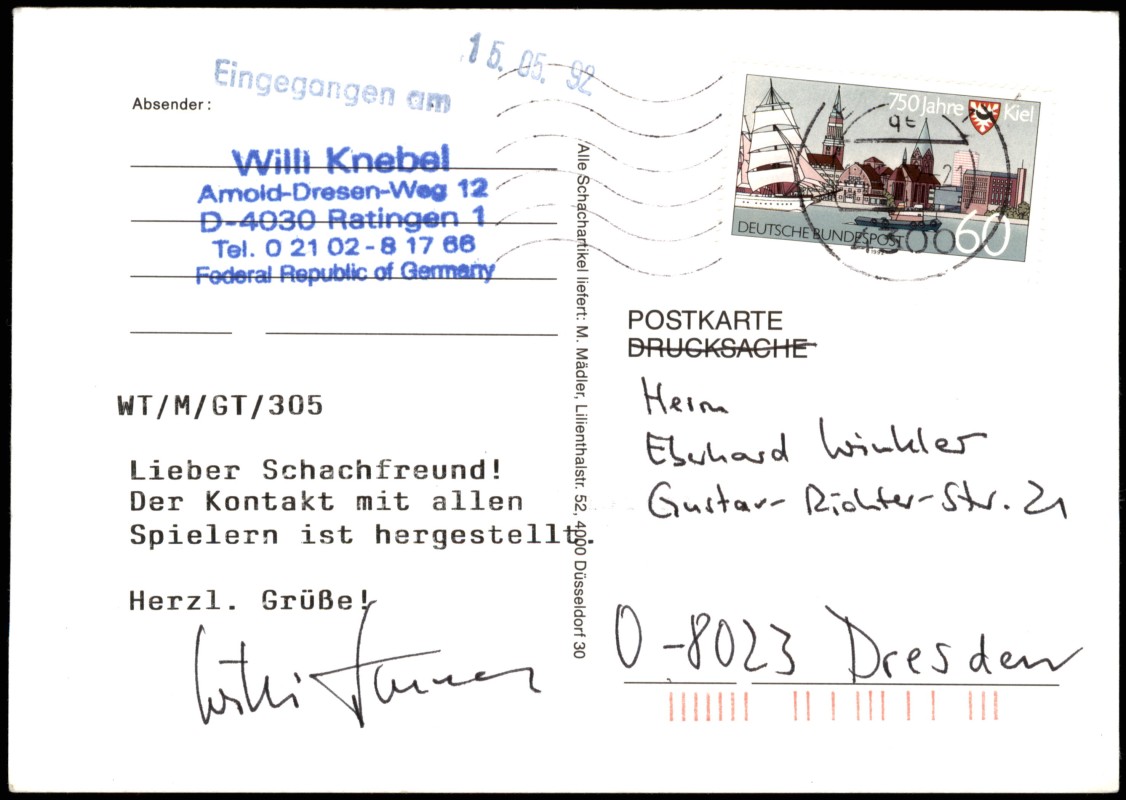 Eingegangen am
15. 05. 92
Absender:
Willi Knebel
Arnold-Dresen-Weg 12
D-4030 Ratingen 1
Tel. 0 21 02 - 8 17 66
Federal Republic of Germany
WT/M/GT/305
Lieber Schachfreund!
Der Kontakt mit allen
Spielern ist hergestellt.
Herzl. Grüße!
Willi
Alle Schachartikel liefert: M. Mädler, Lilienthalstr. 52, 4000 Düsseldorf 30
750 Jahre Kiel
DEUTSCHE BUNDESPOST
60
POSTKARTE
DRUCKSACHE
Herrn
Eberhard Winkler
Gustav-Richter-Str. 21
O-8023 Dresden